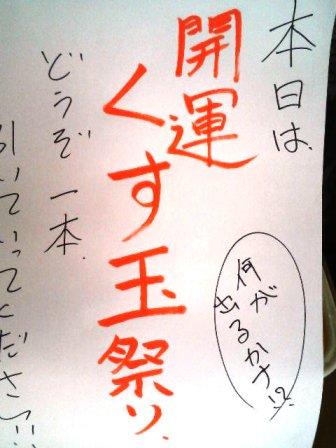 本日は、
開運
くす玉祭り、
何が
出るかナ!?
どうぞ一本、
引いていってください!!